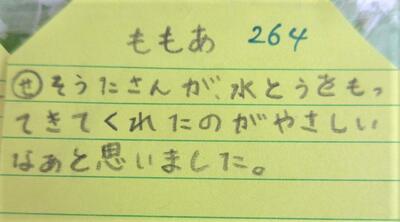 ももあ 264
㋝そうたさんが、水とうをもっ
てきてくれたのがやさしい
なぁと思いました。